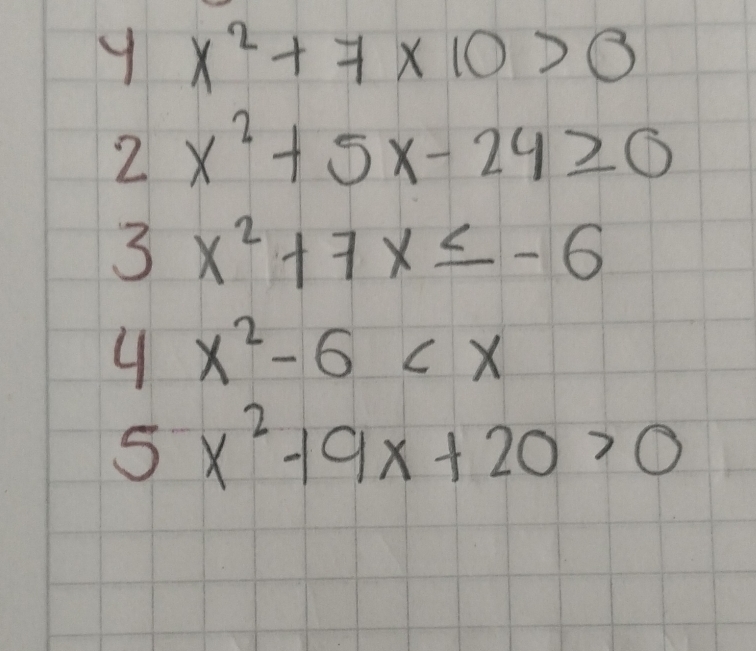 1 x² + 7 x 10 > 0
2 x² + 5x - 24 ≥ 0
3 x² + 7x ≤ - 6
4 x² - 6 < x
5 x² + 9x + 20 > 0